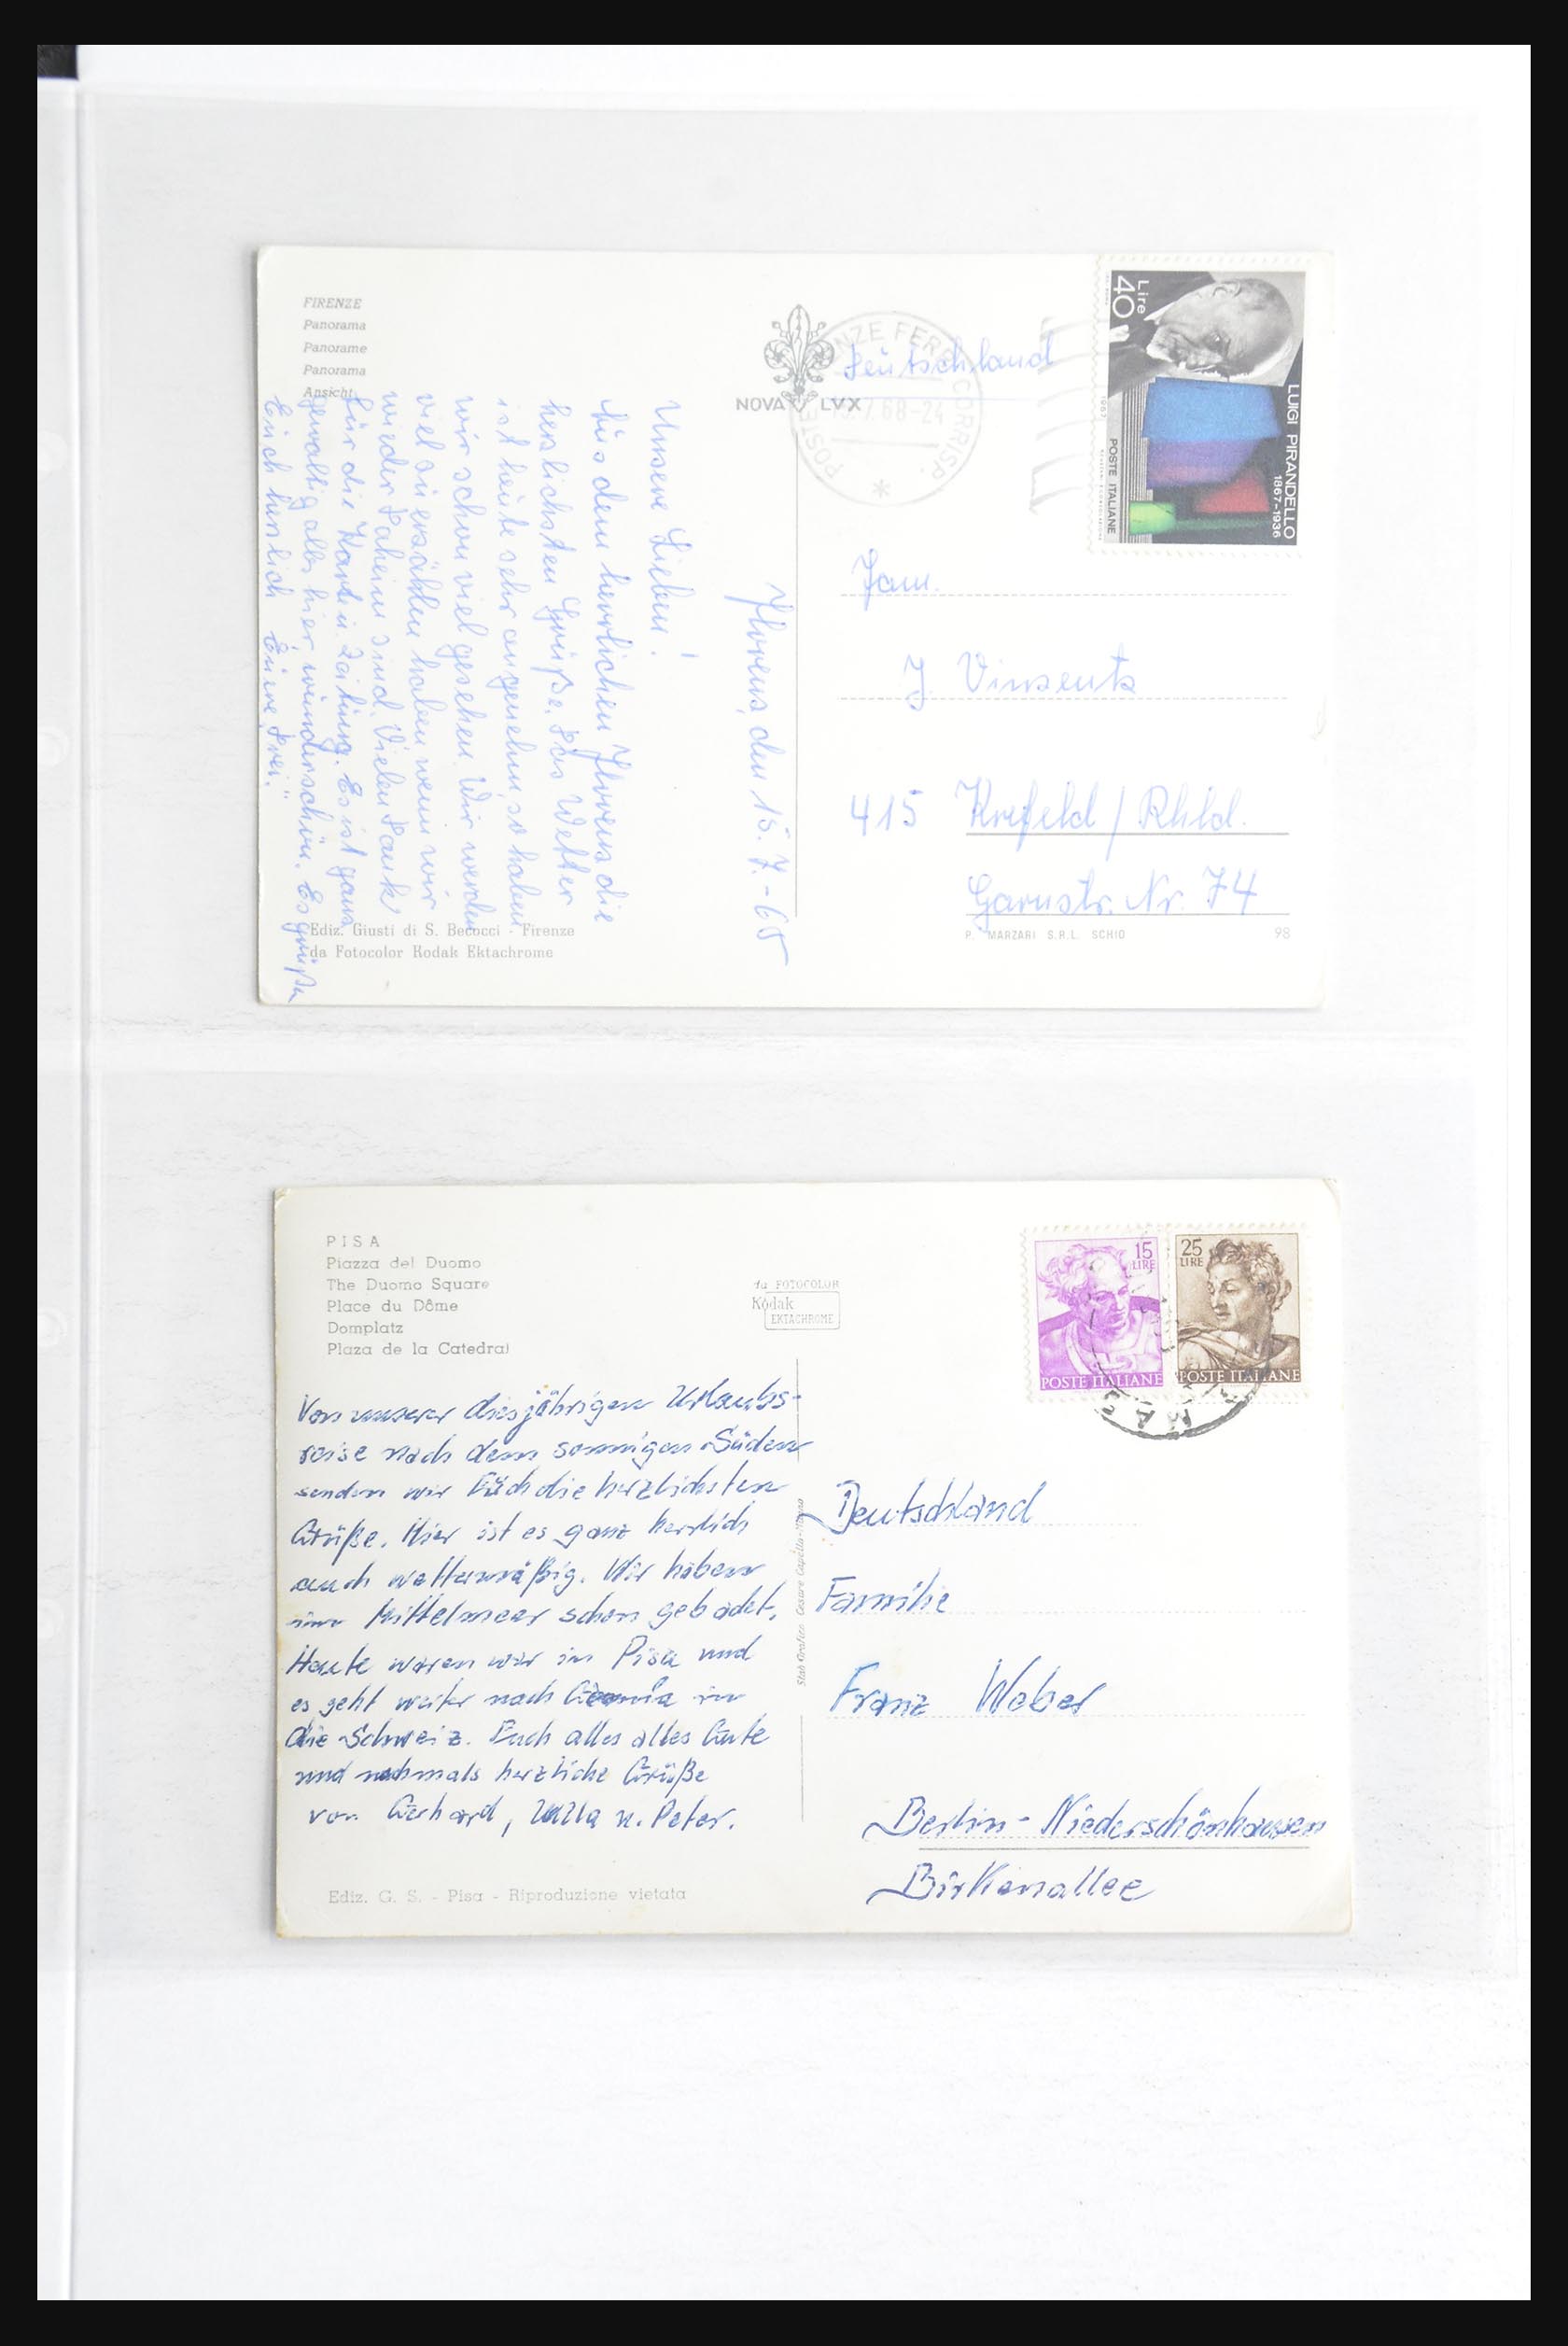 FIRENZE
Panorama
Panorame
Panorama
Ansicht
NOVA LVX
Deutschland
15.7.68-24
POSTE CORRISP.
Lire
40
LUIGI PIRANDELLO
1867-1936
POSTE ITALIANE
Florenz, den 15. 7. - 68
Unsere Lieben!
Aus dem herrlichen Florenz die
herzlichsten Grüße. Das Wetter
ist heute sehr angenehm, so haben
wir schon viel gesehen. Wir werden
viel zu erzählen haben wenn wir
wieder daheim sind. Vielen Dank
für die Karte u. Zeitung. Es ist ganz
gewaltig alles hier, wunderschön. Es grüßen
Euch herzlich Eure Drei."
Fam.
J. Vinsentz
415 Krefeld / Rhld.
Garnstr. Nr. 74
Ediz. Giusti di S. Becocci - Firenze
da Fotocolor Kodak Ektachrome
P. MARZARI S.R.L. SCHIO
98
PISA
Piazza del Duomo
The Duomo Square
Place du Dôme
Domplatz
Plaza de la Catedral
da FOTOCOLOR
Kodak
EKTACHROME
15
LIRE
POSTE ITALIANE
25
LIRE
POSTE ITALIANE
Von unserer diesjährigen Urlaubs-
reise nach dem sonnigen Süden
senden wir Euch die herzlichsten
Grüße. Hier ist es ganz herrlich
auch wettermäßig. Wir haben
im Mittelmeer schon gebadet.
Heute waren wir in Pisa und
es geht weiter nach in
die Schweiz. Euch alles alles Gute
und nochmals herzliche Grüße
von Gerhard, Ulla u. Peter.
Deutschland
Familie
Franz Weber
Berlin - Niederschönhausen
Birkenallee
Ediz. G. S. - Pisa - Riproduzione vietata